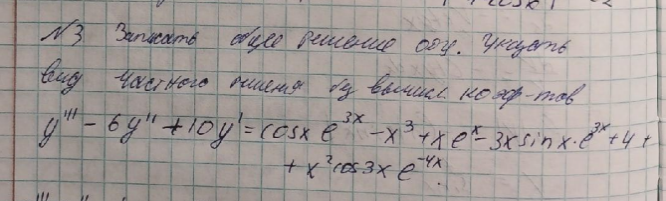 N3 Записать общее решение оду. Указать
вид частного решения без вычисл. коэф-тов
y''' - 6y'' + 10y' = cosx e^{3x} - x^3 + x e^x - 3x sinx · e^{3x} + 4 +
+ x^2 cos3x e^{-4x}.